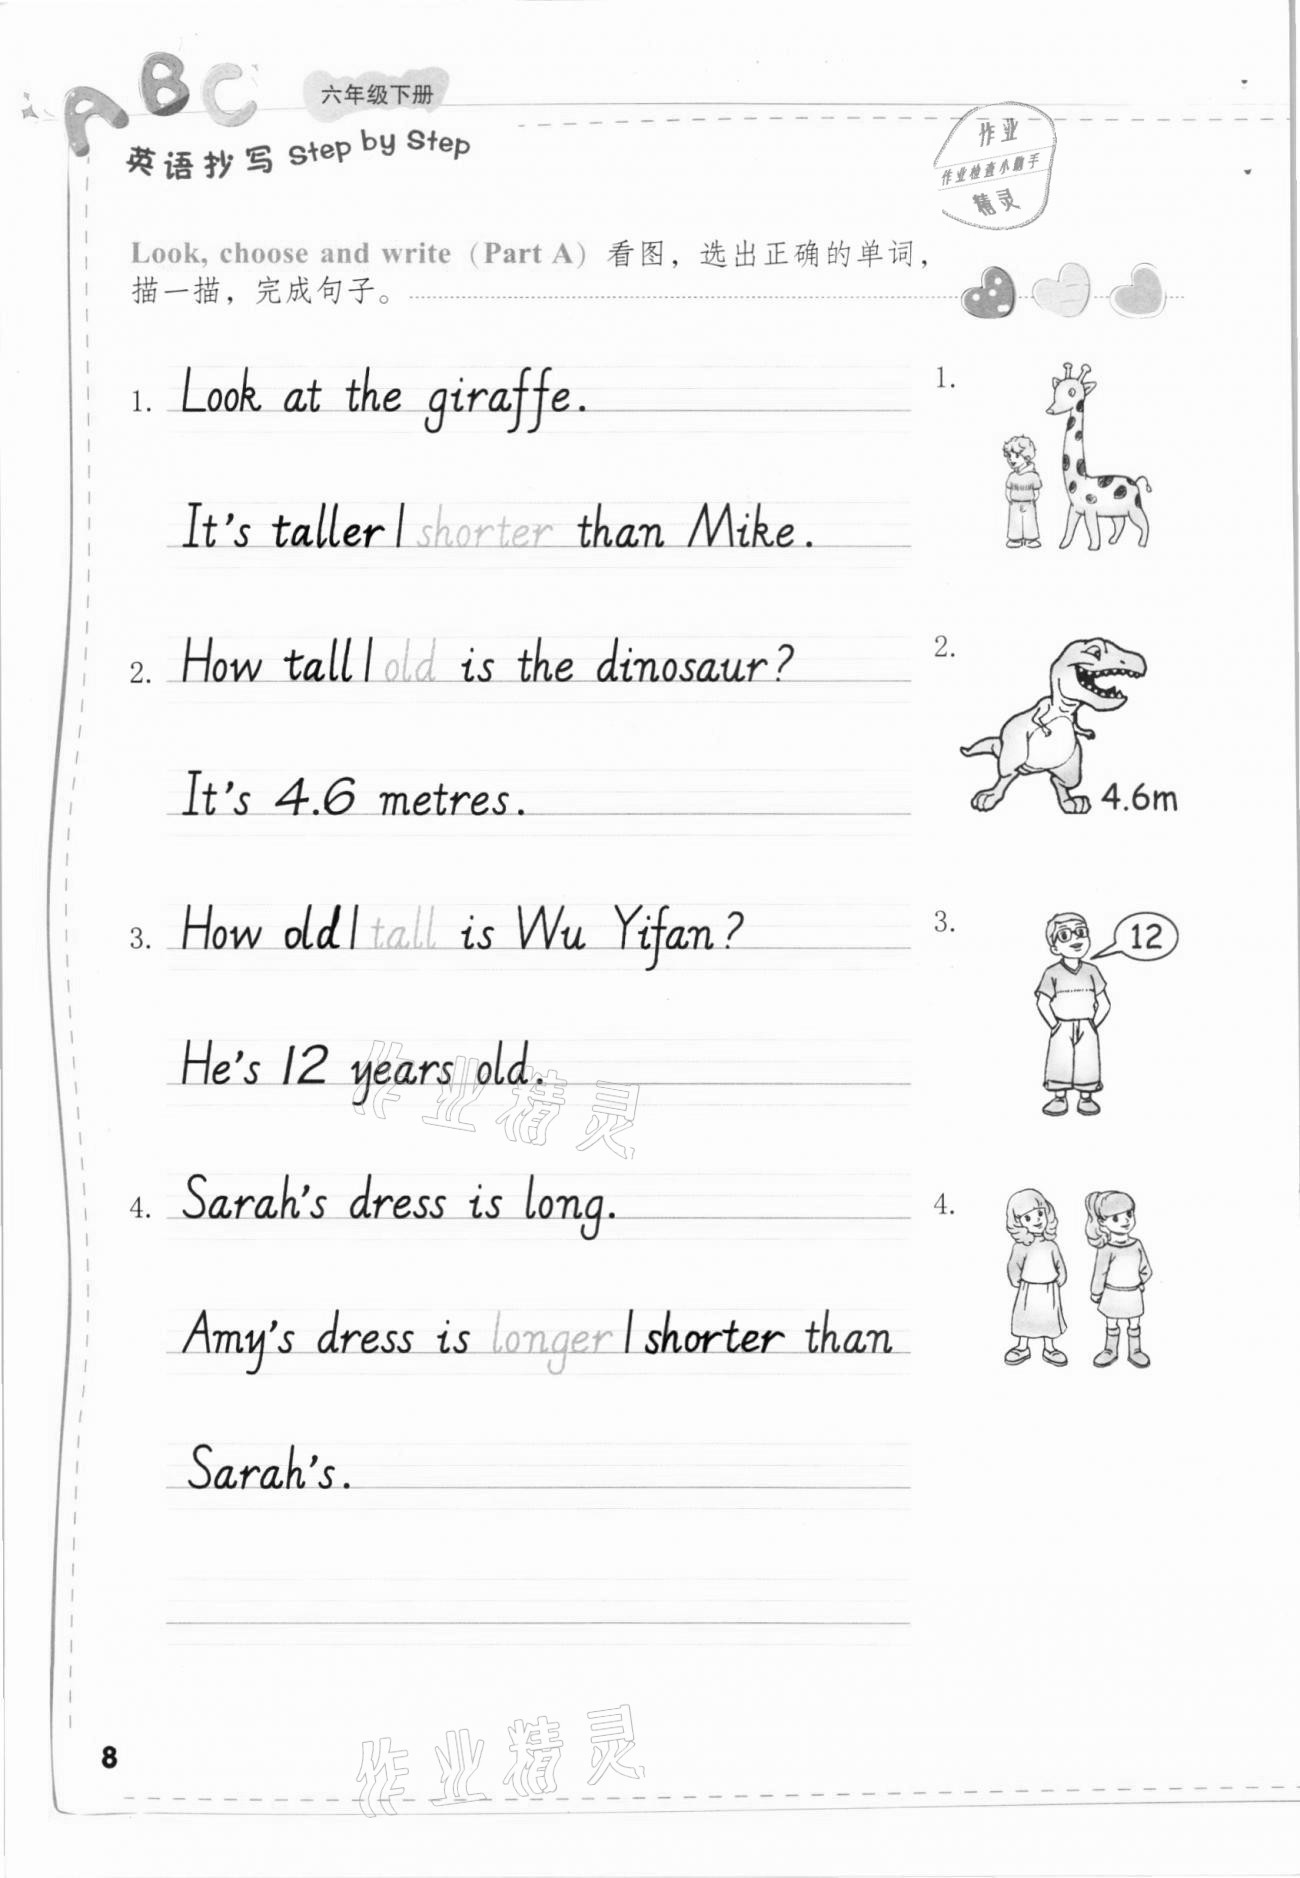 ABC
六年级下册
英语抄写 Step by Step
作业
作业检查小助手
精灵
Look, choose and write (Part A) 看图，选出正确的单词，
描一描，完成句子。
1. Look at the giraffe.
1.
It's taller | shorter than Mike.
2. How tall | old is the dinosaur?
2.
It's 4.6 metres.
4.6m
3. How old | tall is Wu Yifan?
3.
12
He's 12 years old.
作业精灵
4. Sarah's dress is long.
4.
Amy's dress is longer | shorter than
Sarah's.
作业精灵
8